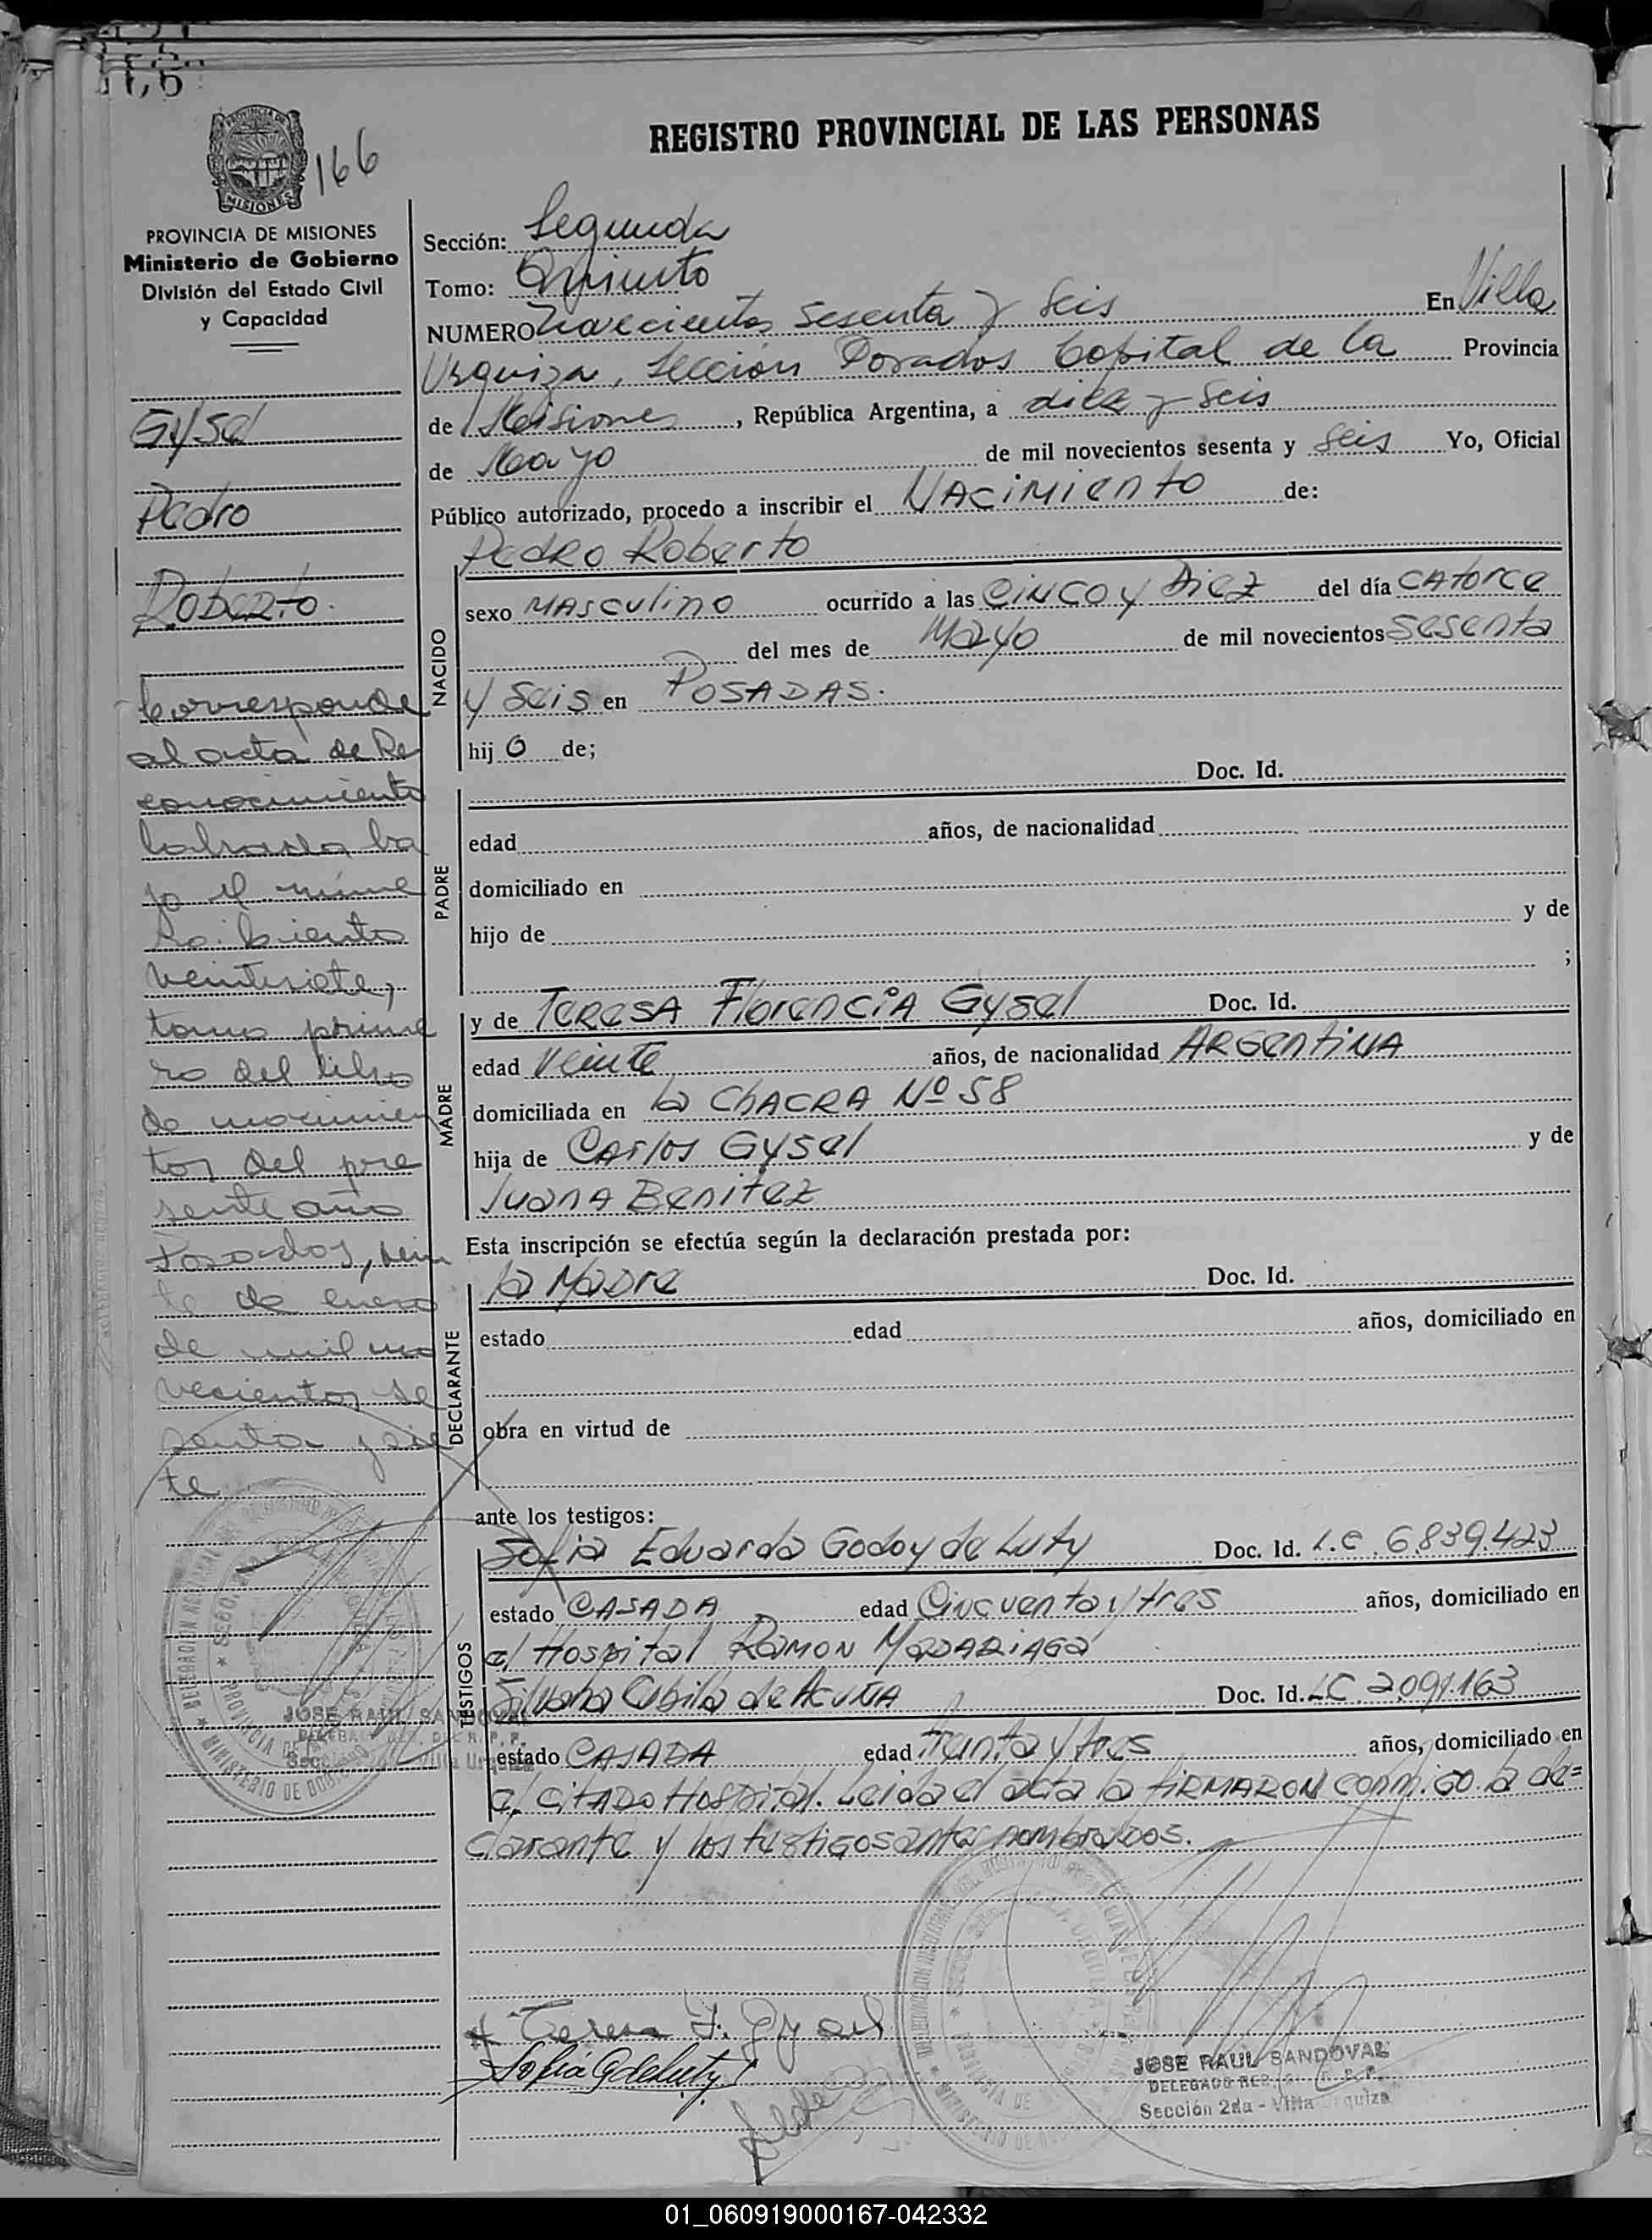 166
REGISTRO PROVINCIAL DE LAS PERSONAS
MISIONES
PROVINCIA DE MISIONES
Ministerio de Gobierno
División del Estado Civil
y Capacidad
Gysel
Pedro
Roberto.
Corresponde
al acta de Re
conocimiento
labrada ba
jo el núme
ro
veintisiete,
tomo prime
ro del libro
de nacimien
tos del pre
sente año
Posadas, vein
te de enero
de mil no
vecientos se
senta y sie
te
JOSE RAUL SANDOVAL
Sección: Segunda
Tomo: Quinto
NUMERO Novecientos sesenta y seis En Villa
Urquiza, sección Posadas Capital de la Provincia
de Misiones, República Argentina, a diez y seis
de Mayo de mil novecientos sesenta y seis Yo, Oficial
Público autorizado, procedo a inscribir el NACiMiento de:
Pedro Roberto
NACIDO
sexo MASCulino ocurrido a las CiNCO y Diez del día CAtorce
del mes de Mayo de mil novecientos Sesenta
y Seis en POSADAS.
hij o de;
PADRE
Doc. Id.
edad años, de nacionalidad
domiciliado en
hijo de y de
;
MADRE
y de TeReSA FlorenciA Gysel Doc. Id.
edad Veinte años, de nacionalidad ARGentiNA
domiciliada en la ChACRA Nº 58
hija de CArlos Gysel y de
JuanA Benitez
Esta inscripción se efectúa según la declaración prestada por:
DECLARANTE
la Madre Doc. Id.
estado edad años, domiciliado en
obra en virtud de
ante los testigos:
TESTIGOS
Sofia Eduarda Godoy de Luty Doc. Id. L.C. 6.839.423
estado CASADA edad Cincuenta y tres años, domiciliado en
el Hospital RAMON MADARiAGA
Silvana Cubilla de AcuñA Doc. Id. LC. 2.091.163
estado CASADA edad treinta y tres años, domiciliado en
el CitADO HosPital. Leida el acta la fiRMARON conmiGO la de=
clarante y los testigos antes nombrados.
Teresa F. Gysel
Sofia G de Luty
JOSE RAUL SANDOVAL
Sección 2da - Villa Urquiza
01_060919000167-042332